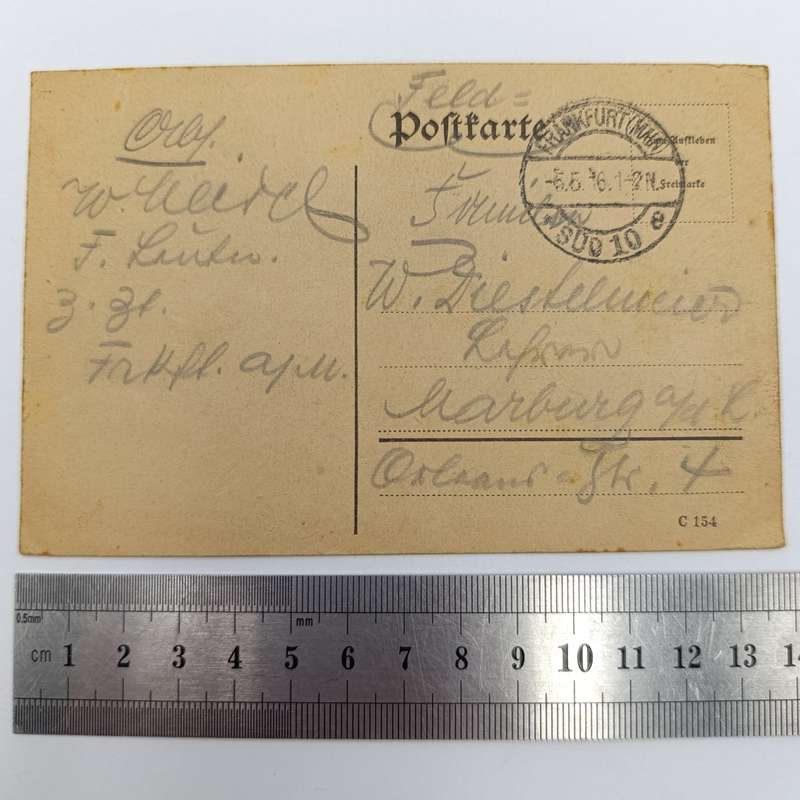 Feld=
Postkarte
Aufkleben
der
Freimarke
FRANKFURT (MAIN)
-5.5.16.1-2N.
SÜD 10 e
Abs.
W.
F. Leutn.
z. Zt.
Frkft. a/M.
W. Diestelmeier
Lehrer
Marburg a/d L.
Orleans-Str. 4
C 154
0.5mm
mm
cm 1 2 3 4 5 6 7 8 9 10 11 12 13 14